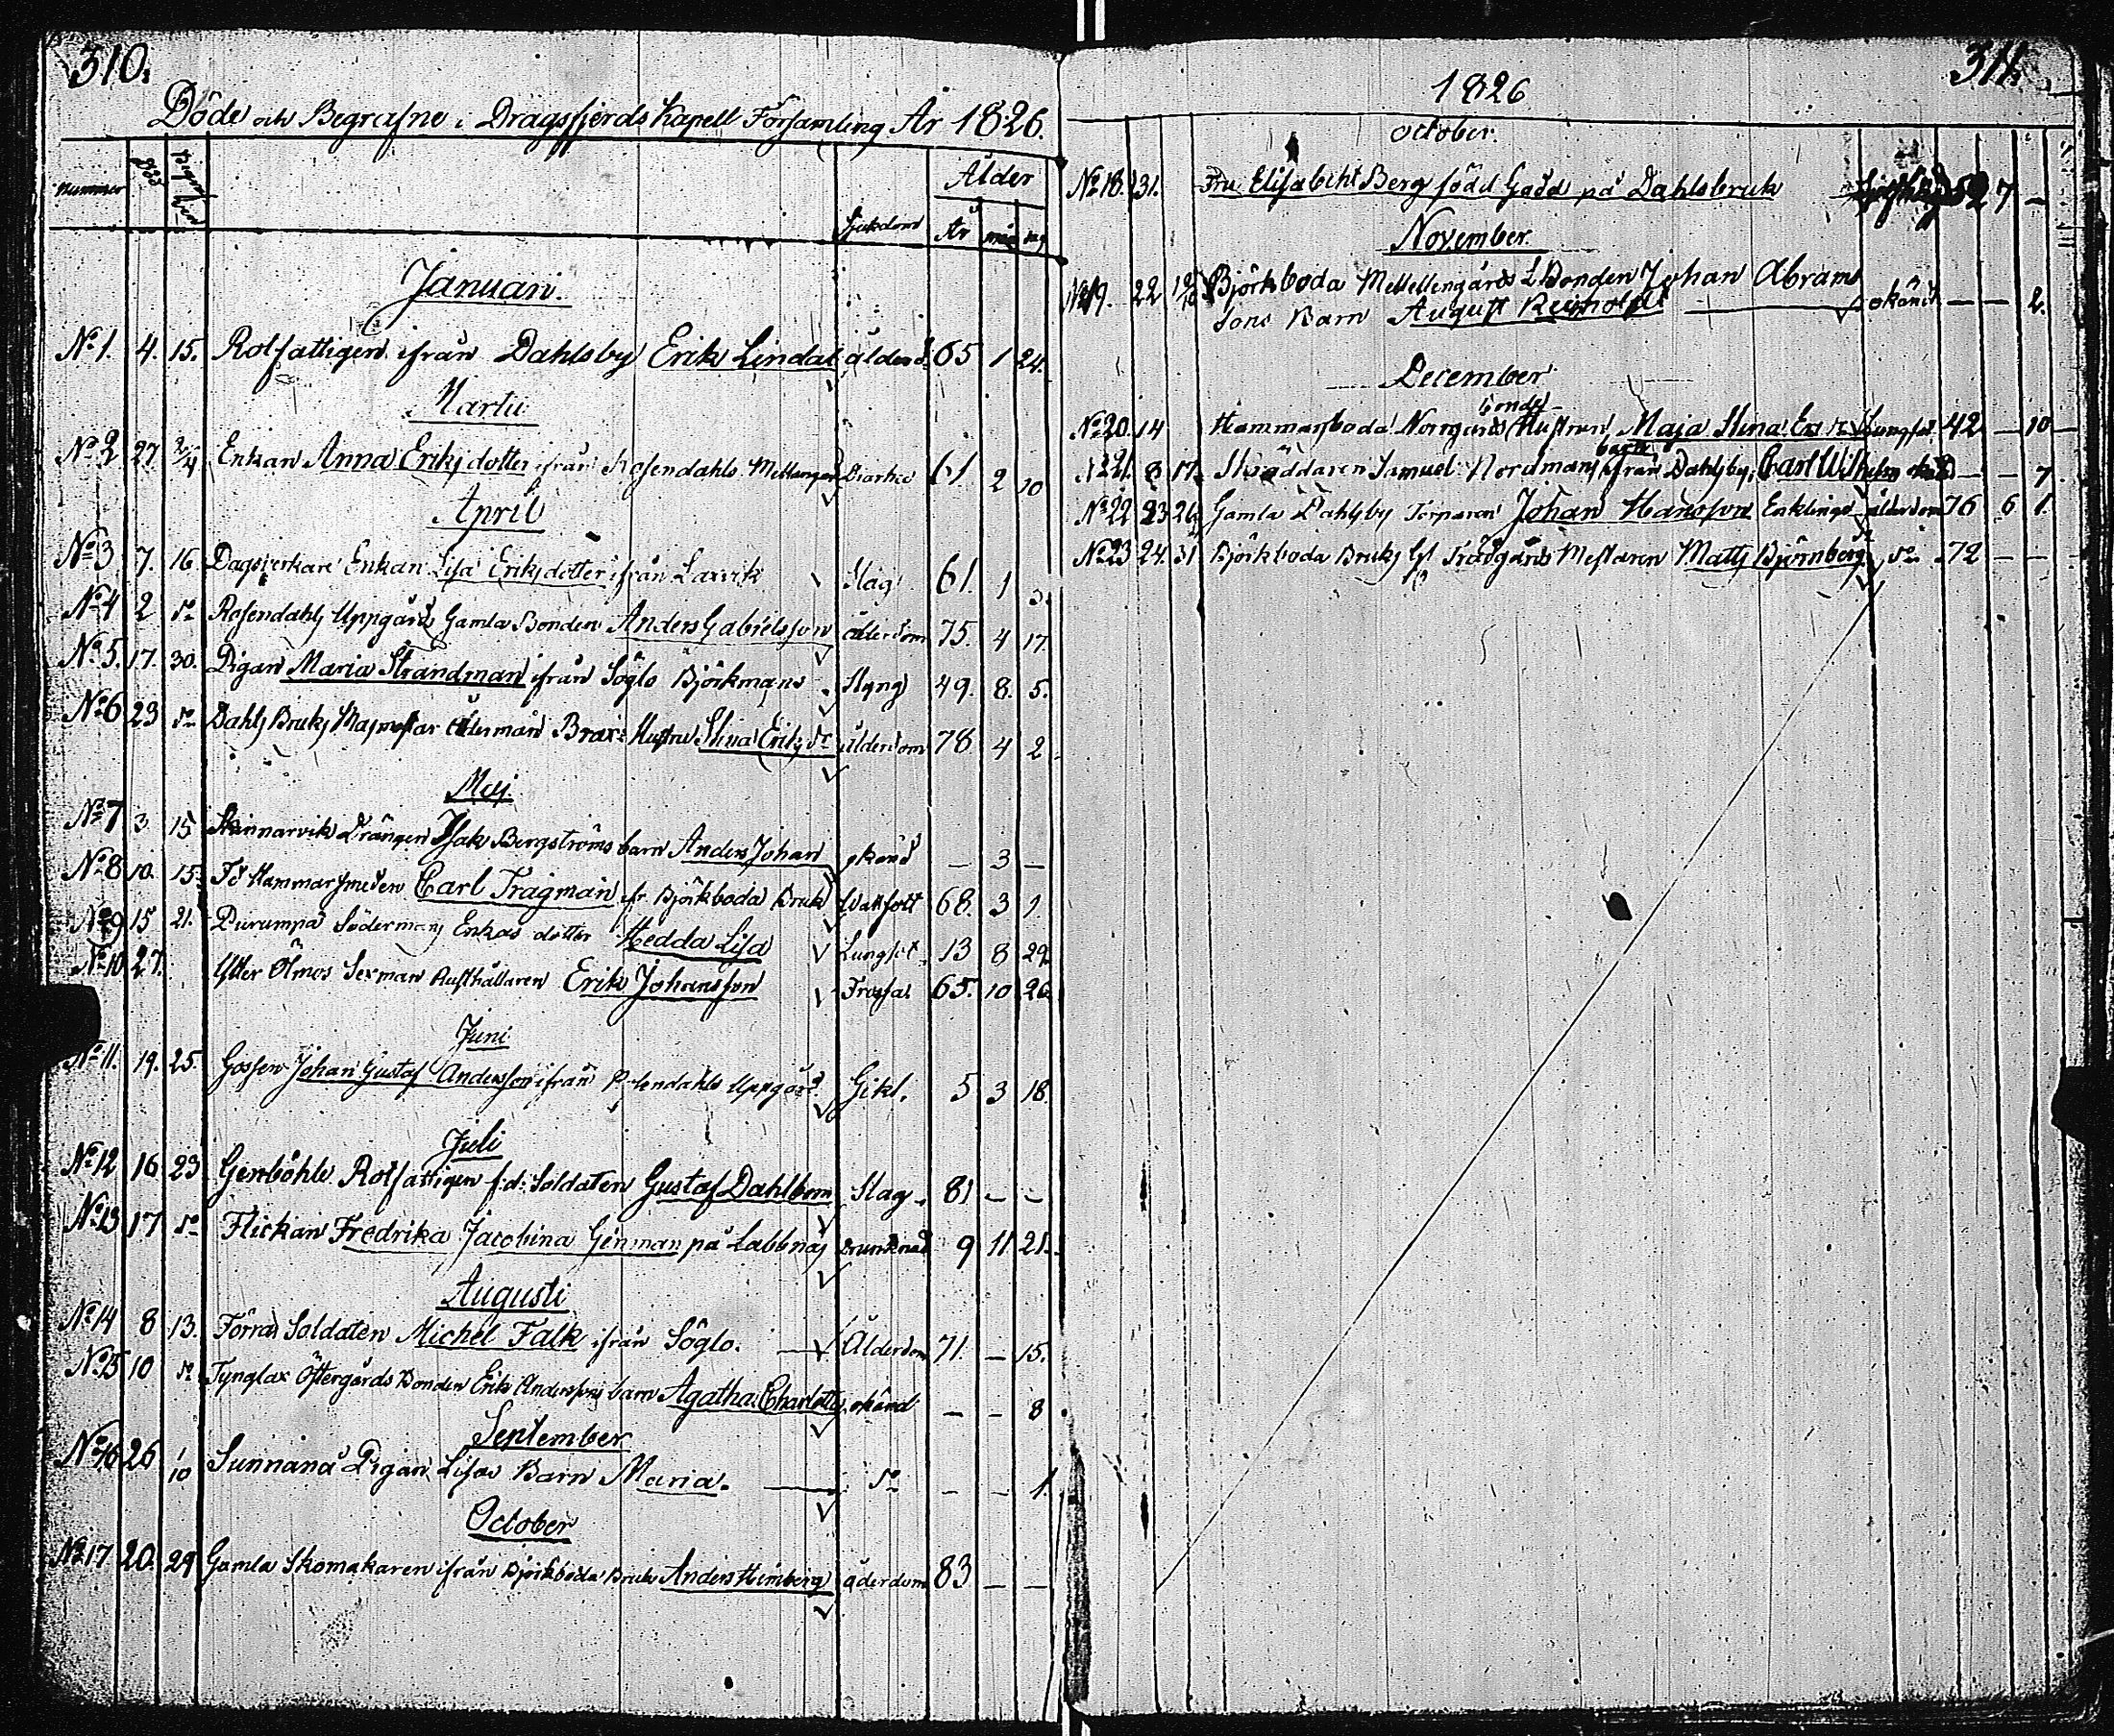 310.
Döde och Begrafne i Dragsfjerds Kapell Församling År 1826.
nummer död Ålder
Sjukdom År
Januari.
No 1. 4. 15. Rotfattigen ifrån Dahlsby Erik Lindal ålderd. 65 1 24.
Martii
No 2 27 2/4 Enkan Anna Eriksdotter ifrån Rosendahls Mellangård Diarhee 61 2 10
April
No 3 7. 16. Dagsverkare Enkan Lisa Eriksdotter ifrån Laxvik Slag 61. 1 3.
No 4 2 do Rosendahls Uppgårds Gamla Bonden Anders Gabrielsson ålderdom 75. 4 17.
No 5. 17. 30. Pigan Maria Strandman ifrån Söglo Björkmans Styng 49. 8. 5.
No 6 23 do Dahls Bruks Masmästar Ålderman Brax Hustru Stina Eriks dr ålderdom 78 4 2
Maj.
No 7 3 15 Skinnarvik Drängen Isak Bergströms barn Anders Johan okänd — 3 —
No 8 10. 15. Fd Hammarsmeden Carl Trägman ifr. Björkboda Bruk Wattsott 68. 3 1.
No 9 15 21. Purumpa Södermans Enkas dotter Hedda Lisa Lungsot 13 8 29.
No 10 27. Ytter Ölmos Sexman Rusthållaren Erik Johansson Frossa 65. 10 26.
Juni
No 11. 19. 25. Gossen Johan Gustaf Andersson ifrån Rosendahls Uppgård Gikt. 5 3 18.
Juli
No 12 16 23 Genböhle Rotfattigen f:d: Soldaten Gustaf Dahlbom Slag 81 — —
No 13 17 do Flickan Fredrika Jacobina Genman på Labbnäs Drunknad 9 11 21.
Augusti
No 14 8 13. Förra Soldaten Michel Falk ifrån Söglo. Ålderdom 71. — 15.
No 15 10 do Tynglax Östergårds Bonden Erik Anderssons barn Agatha Charlotta okänd — — 8
September
No 16 26 1/10 Sunnanå Pigan Lisas Barn Maria. do — — 1.
October
No 17 20. 29 Gamla Skomakaren ifrån Björkboda Bruk Anders Himberg åderdom 83 — —
311.
1826
October.
No 18. 31. Fru Elisabeht Berg född Gadd på Dahlsbruk 52 7 —
November.
No 19. 22 Björkboda Mellengårds Bonden Johan Abrams
sons Barn August Reinhold okänd — — 2.
December
bonde
No 20. 14 Hammarsboda Norrgårds Hustrun Maja Stina Lungsot 42 — 10
barn
No 21. 8 17. Skräddaren Samuel Nordmans ifrån Dahlsby, Carl Wilhelm okänd — — 7.
No 22 23 26 Gamla Dahlsby Torparen Johan Hansson Enklinge ålderdom 76 6 1.
No 23 24. 31 Björkboda Bruks Gl Trädgårds Mestaren Matts Björnberg do 72 — —